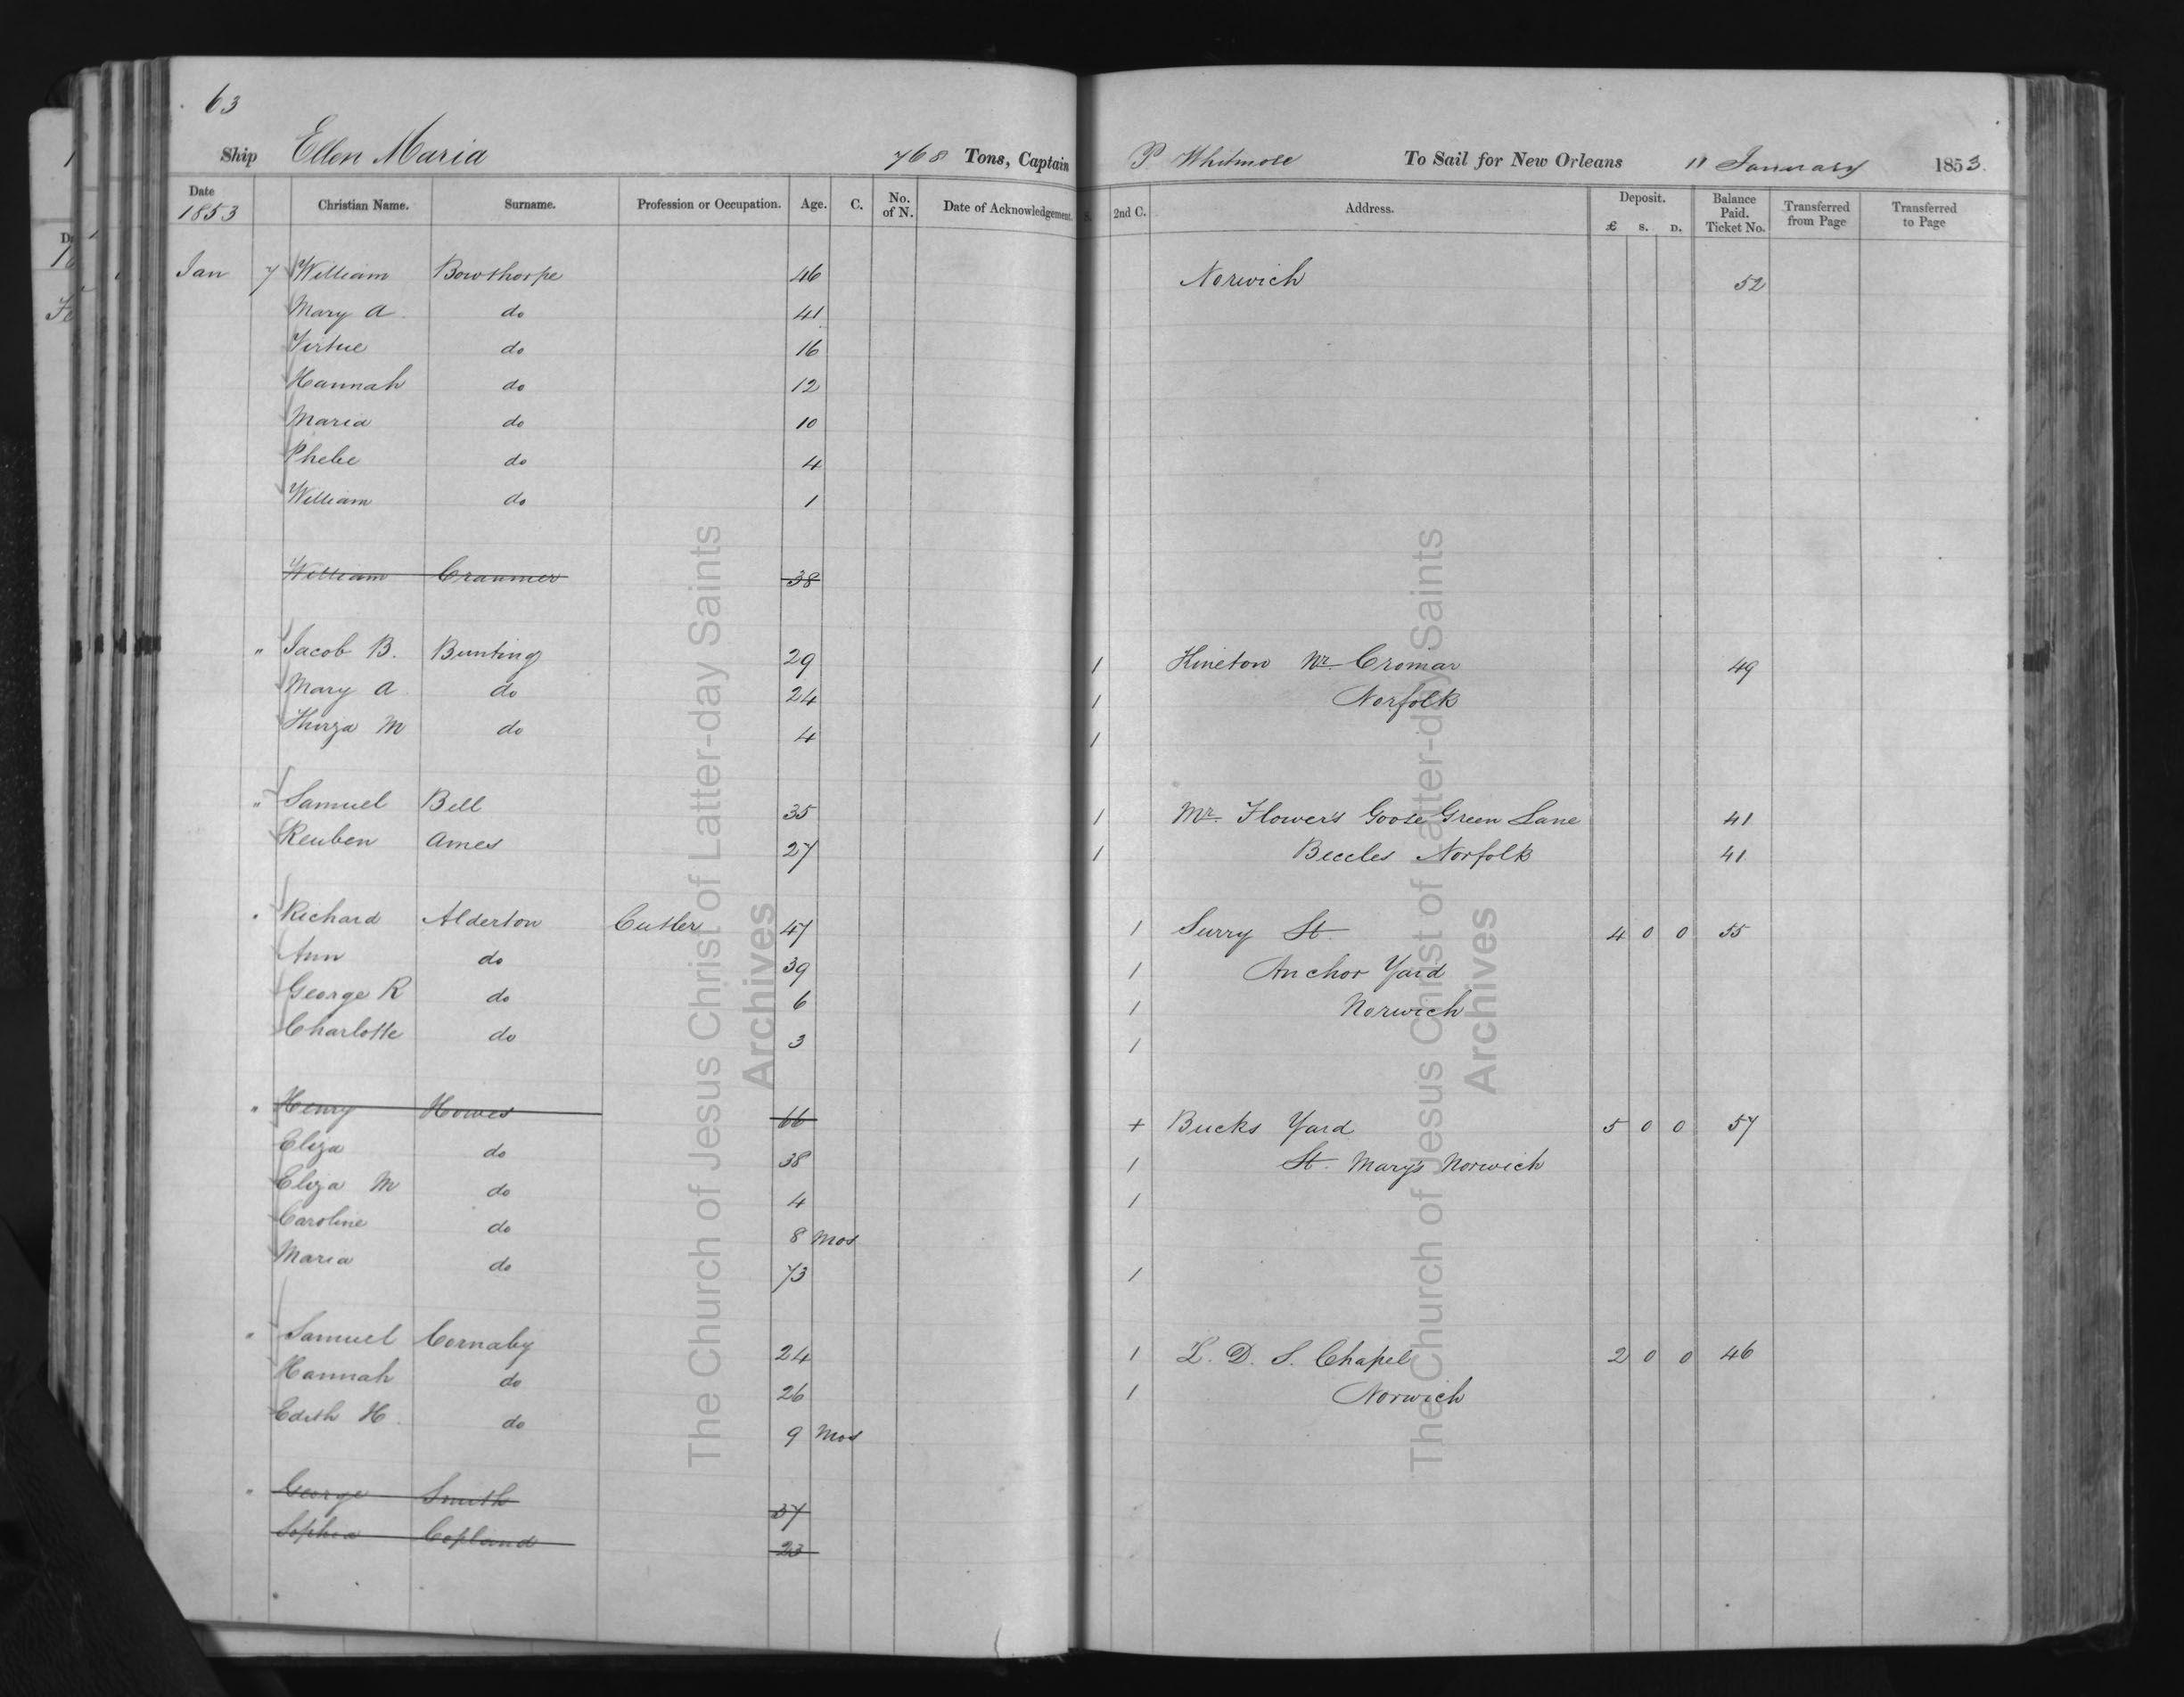 63
Ship Ellen Maria 768 Tons, Captain P. Whitmore To Sail for New Orleans 11 January 1853.
Date 1853 Christian Name. Surname. Profession or Occupation. Age. C. No. of N. Date of Acknowledgement. S. 2nd C. Address. Deposit. £ S. D. Balance Paid. Ticket No. Transferred from Page Transferred to Page
Jan 7 William Bowthorpe 46 Norwich 52
Mary A. do 41
Virtue do 16
Hannah do 12
Maria do 10
Phebe do 4
William do 1
William Cranmer 38
" Jacob B. Bunting 29 1 Hineton Nr. Cromar 49
Mary A do 24 1 Norfolk
Thirza M do 4 1
" Samuel Bell 35 1 Mr. Flower's Goose Green Lane 41
Reuben Ames 27 1 Beccles Norfolk 41
" Richard Alderton Cutler 47 1 Surry St. 4 0 0 55
Ann do 39 1 Anchor Yard
George R do 6 1 Norwich
Charlotte do 3 1
" Henry Howes 66 + Bucks Yard 5 0 0 57
Eliza do 38 1 St. Mary's Norwich
Eliza M do 4 1
Caroline do 8 Mos
Maria do 73 1
" Samuel Cornaby 24 1 L. D. S. Chapel 2 0 0 46
Hannah do 26 1 Norwich
Edith H. do 9 Mos
" George Smith 37
Sophia Copland 23
The Church of Jesus Christ of Latter-day Saints
Archives
The Church of Jesus Christ of Latter-day Saints
Archives